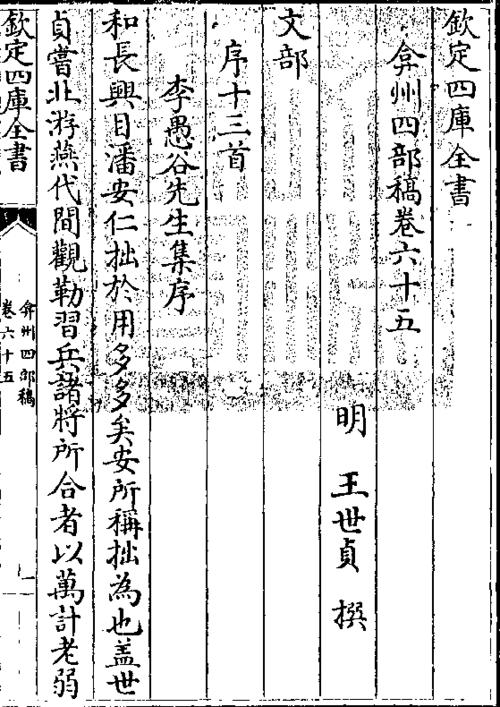 欽定四庫全書
弇州四部稿卷六十五
明 王世貞 撰
文部
序十三首
李愚谷先生集序
和長輿目潘安仁拙於用多多矣安所稱拙為也蓋世
貞嘗北游燕代間觀勒習兵諸將所合者以萬計老弱
欽定四庫全書
弇州四部稿
卷六十五
一